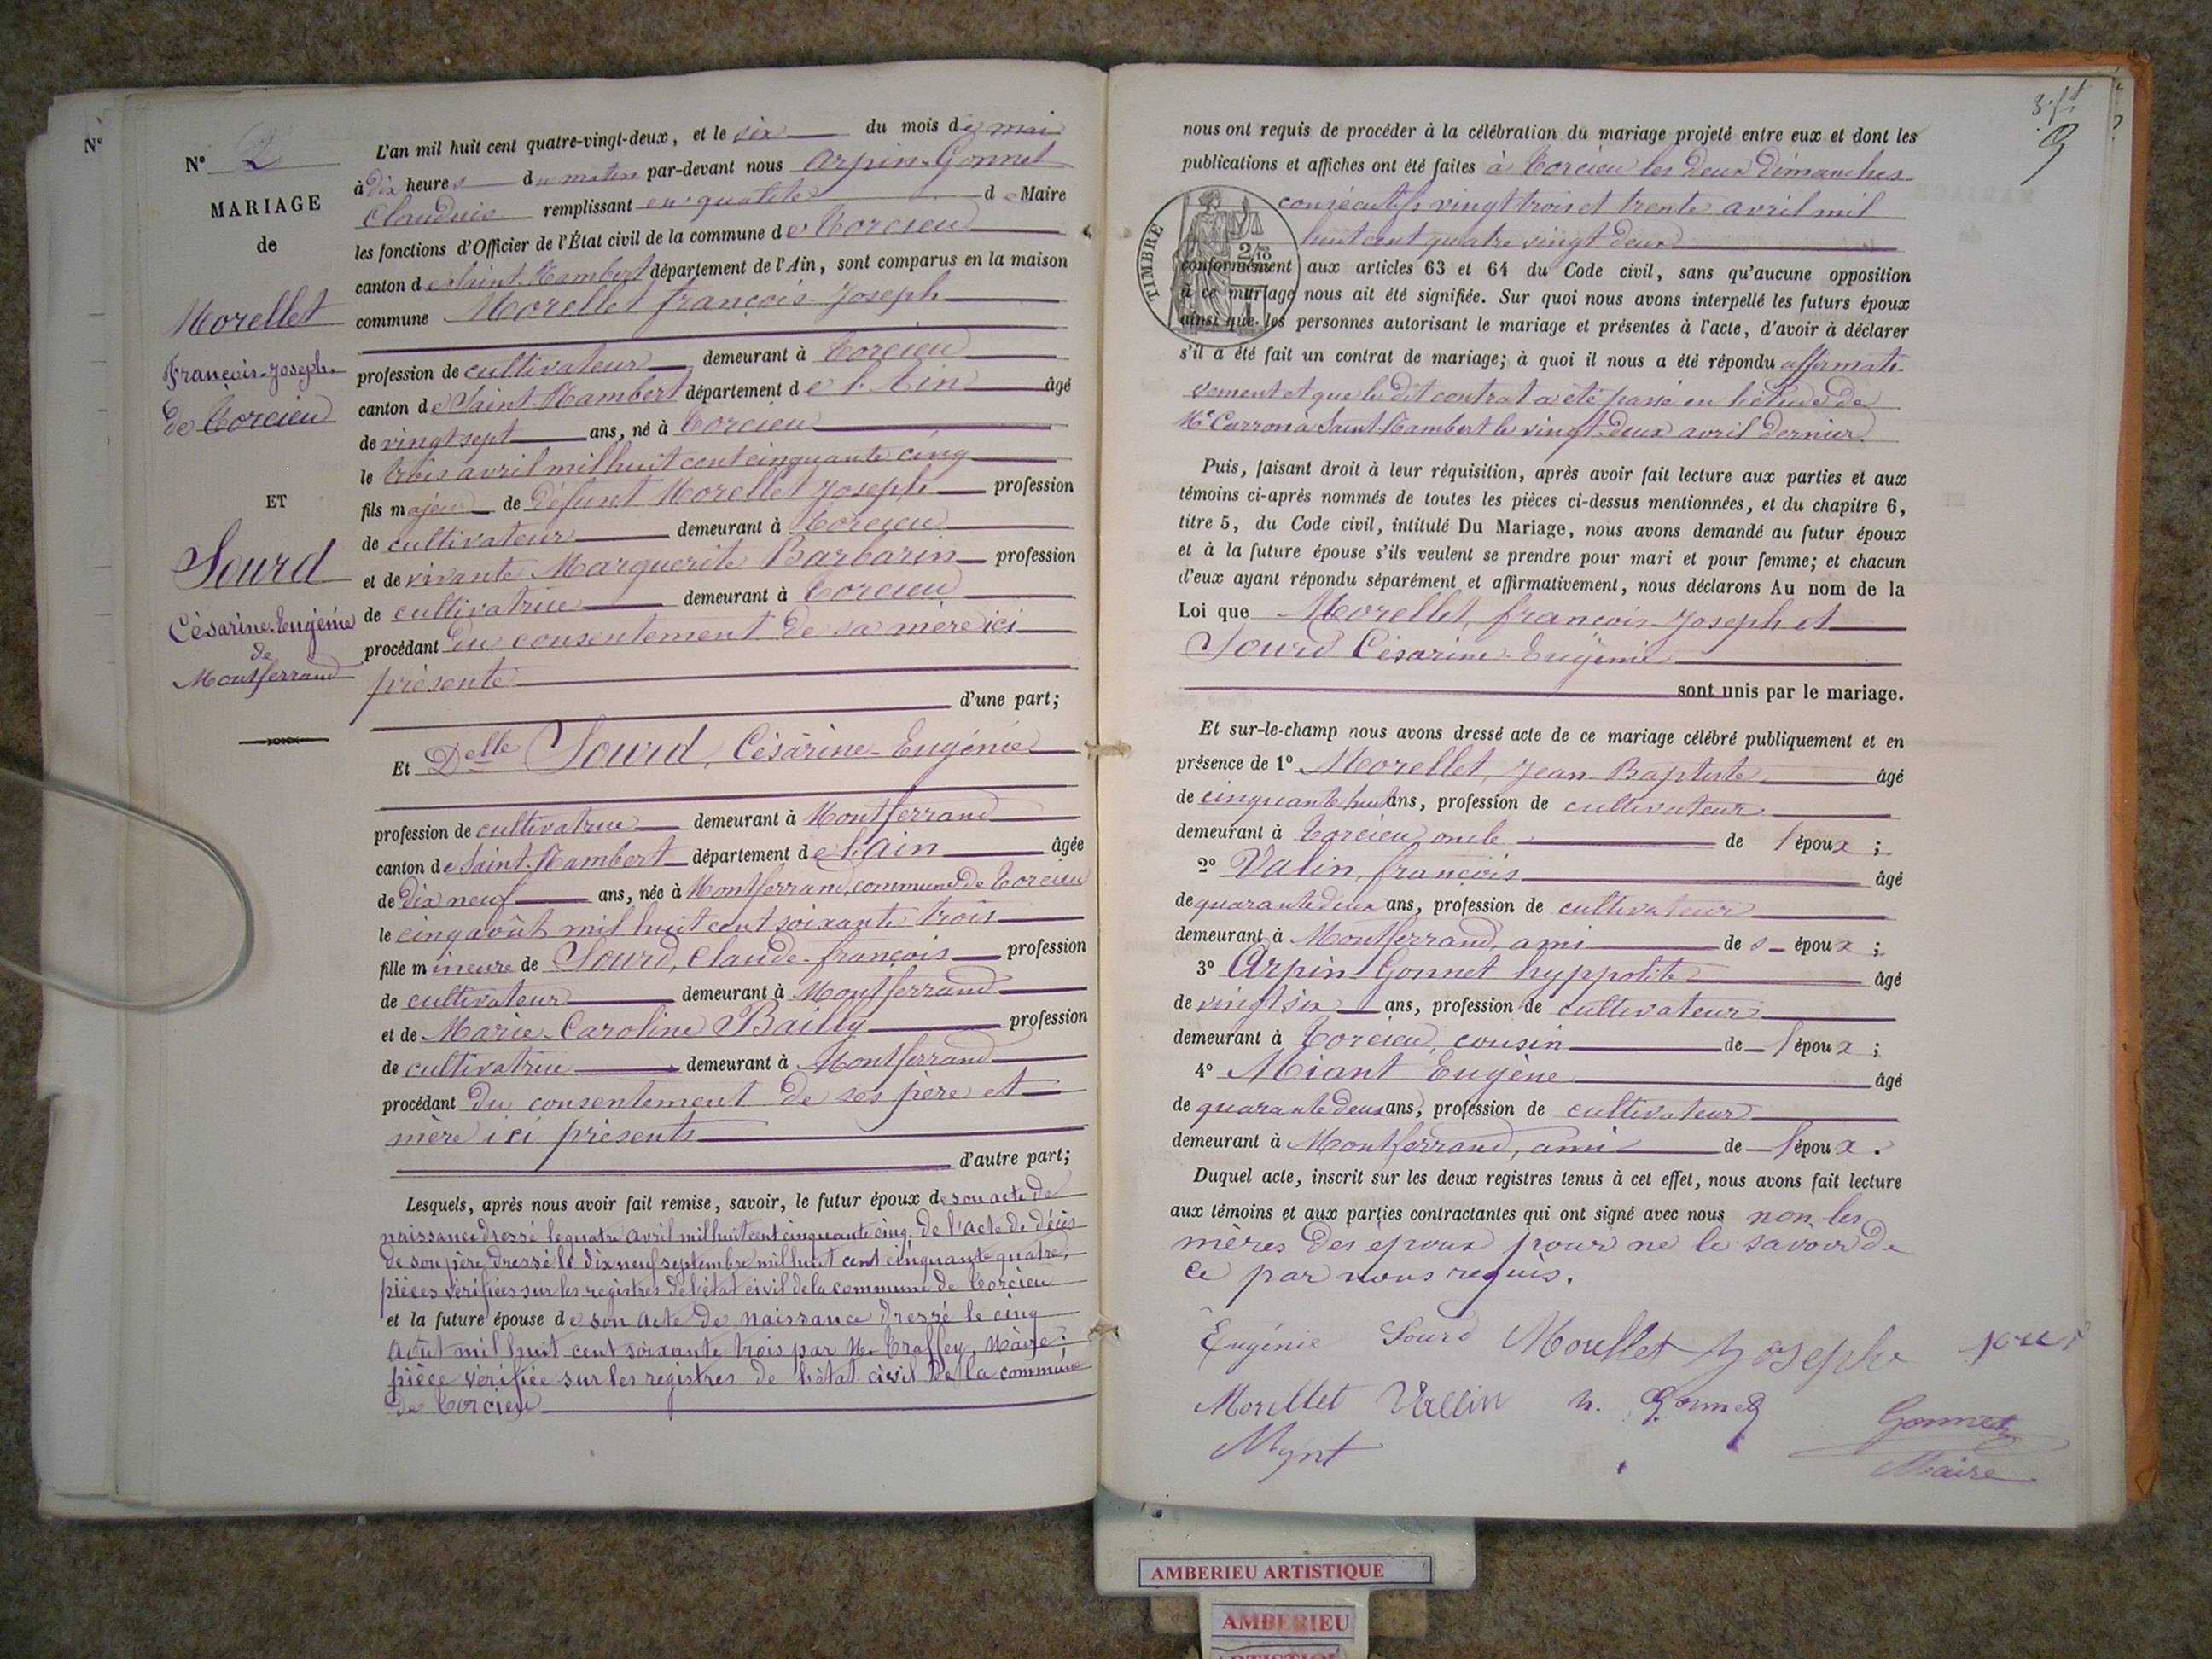 Nº
Nº 2
MARIAGE
de
Morellet
François-Joseph
de Torcieu
ET
Sourd
Césarine-Eugénie
de
Montferrand
L'an mil huit cent quatre-vingt-deux, et le six du mois de mai
à dix heures du matin par-devant nous Arpin-Gonnet
Claudius remplissant en qualité de Maire
les fonctions d'Officier de l'État civil de la commune de Torcieu
canton de Saint-Rambert département de l'Ain, sont comparus en la maison
commune Morellet françois-Joseph
profession de cultivateur demeurant à Torcieu
canton de Saint-Rambert département de l'Ain âgé
de vingt sept ans, né à Torcieu
le trois avril mil huit cent cinquante cinq
fils majeur de défunt Morellet Joseph profession
de cultivateur demeurant à Torcieu
et de vivante Marguerite Barbarin profession
de cultivatrice demeurant à Torcieu
procédant du consentement de sa mère ici
présente
d'une part;
Et Delle Sourd, Césarine-Eugénie
profession de cultivatrice demeurant à Montferrand
canton de Saint-Rambert département de l'Ain âgée
de dix neuf ans, née à Montferrand, commune de Torcieu
le cinq août mil huit cent soixante trois
fille mineure de Sourd, Claude-françois profession
de cultivateur demeurant à Montferrand
et de Marie-Caroline Bailly profession
de cultivatrice demeurant à Montferrand
procédant du consentement de ses père et
mère ici présents
d'autre part;
Lesquels, après nous avoir fait remise, savoir, le futur époux de son acte de
naissance dressé le quatre avril mil huit cent cinquante cinq, de l'acte de décès
de son père dressé le dix neuf septembre mil huit cent cinquante quatre,
pièces vérifiées sur les registres de l'état civil de la commune de Torcieu
et la future épouse de son acte de naissance dressé le cinq
Août mil huit cent soixante trois par M. Traffey, Maire;
pièce vérifiée sur les registres de l'état civil de la commune
de Torcieu
9
nous ont requis de procéder à la célébration du mariage projeté entre eux et dont les
publications et affiches ont été faites à Torcieu les deux dimanches
consécutifs vingt trois et trente avril mil
huit cent quatre vingt deux
TIMBRE
2/10
conformément aux articles 63 et 64 du Code civil, sans qu'aucune opposition
à ce mariage nous ait été signifiée. Sur quoi nous avons interpellé les futurs époux
ainsi que les personnes autorisant le mariage et présentes à l'acte, d'avoir à déclarer
s'il a été fait un contrat de mariage; à quoi il nous a été répondu affirmati-
vement et que le dit contrat a été passé en l'étude de
Me Carron à Saint-Rambert le vingt-deux avril dernier.
Puis, faisant droit à leur réquisition, après avoir fait lecture aux parties et aux
témoins ci-après nommés de toutes les pièces ci-dessus mentionnées, et du chapitre 6,
titre 5, du Code civil, intitulé Du Mariage, nous avons demandé au futur époux
et à la future épouse s'ils veulent se prendre pour mari et pour femme; et chacun
d'eux ayant répondu séparément et affirmativement, nous déclarons Au nom de la
Loi que Morellet, françois-Joseph et
Sourd Césarine-Eugénie
sont unis par le mariage.
Et sur-le-champ nous avons dressé acte de ce mariage célébré publiquement et en
présence de 1º Morellet, Jean-Baptiste âgé
de cinquante huit ans, profession de cultivateur
demeurant à Torcieu, oncle de l'époux;
2º Valin, françois âgé
de quarante deux ans, profession de cultivateur
demeurant à Montferrand, ami des époux;
3º Arpin-Gonnet hyppolite âgé
de vingt six ans, profession de cultivateur
demeurant à Torcieu, cousin de l'époux;
4º Miant Eugène âgé
de quarante deux ans, profession de cultivateur
demeurant à Montferrand, ami de l'époux.
Duquel acte, inscrit sur les deux registres tenus à cet effet, nous avons fait lecture
aux témoins et aux parties contractantes qui ont signé avec nous non les
mères des époux pour ne le savoir de
ce par nous requis.
Eugénie Sourd Morellet Joseph
Morellet Vallin h. Gonnet Gonnet
Mynt Maire
AMBERIEU ARTISTIQUE
AMBERIEU
ARTISTIQUE